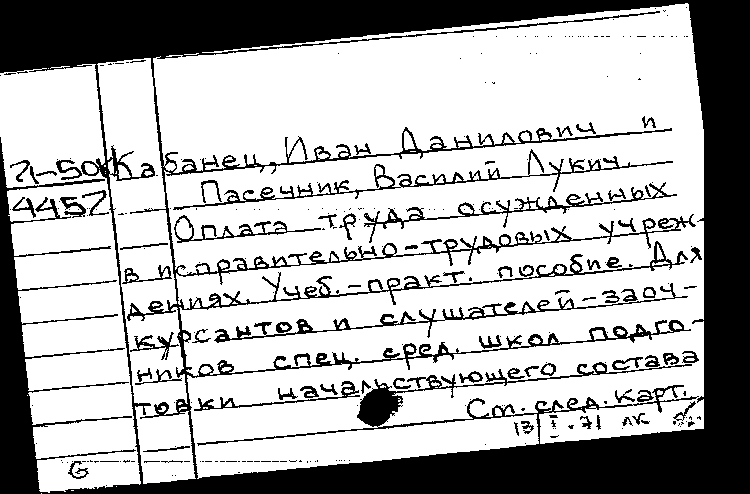 71-50к Кабанец, Иван Данилович и
4457 Пасечник, Василий Лукич.
Оплата труда осужденных
в исправительно-трудовых учреж-
дениях. Учеб.-практ. пособие. Для
курсантов и слушателей-заоч-
ников спец. сред. школ подго-
товки начальствующего состава
См. след. карт.
13/I-71 ЛК
G